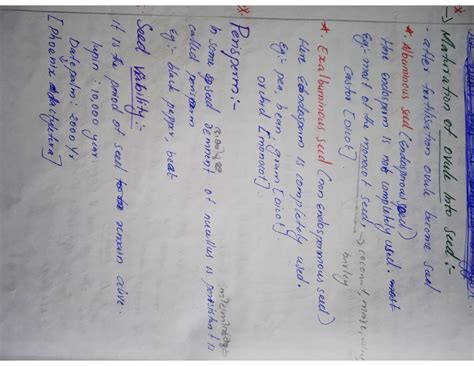 →) Maturation of ovule into seed :-
- after fertilisation ovule become seed
* Albuminous seed (endospermous seed)
Here endosperm is not completely used. most
Eg:- most of the monocot seed, → coconut, maize,
castor [dicot] barley
* Exalbuminous seed (non endospermous seed)
Here endosperm is completely used.
Eg:- pea, bean, gram [dicot].
orchid [monocot].
* Perisperm :-
In some seed remnent of nucellus is persistent is
called perisperm
Eg:- black pepper, beat
Seed Viability :-
it is the period of seed to remain alive.
lupin : 10,000 year
Datepalm : 2000 yrs
[Phoenix dactylifera]